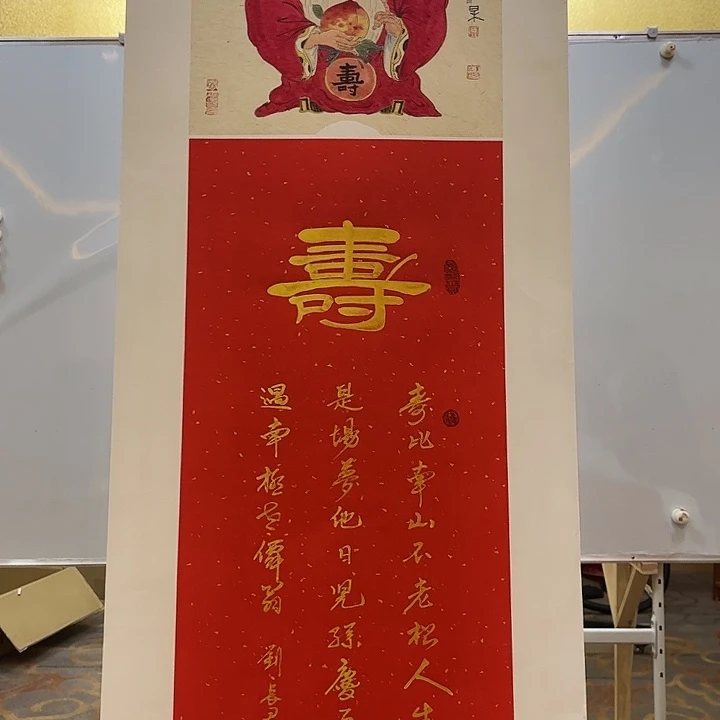 壽
壽
壽比南山不老松人生
是場夢他日兒孫慶百
過南極老僊翁
劉長